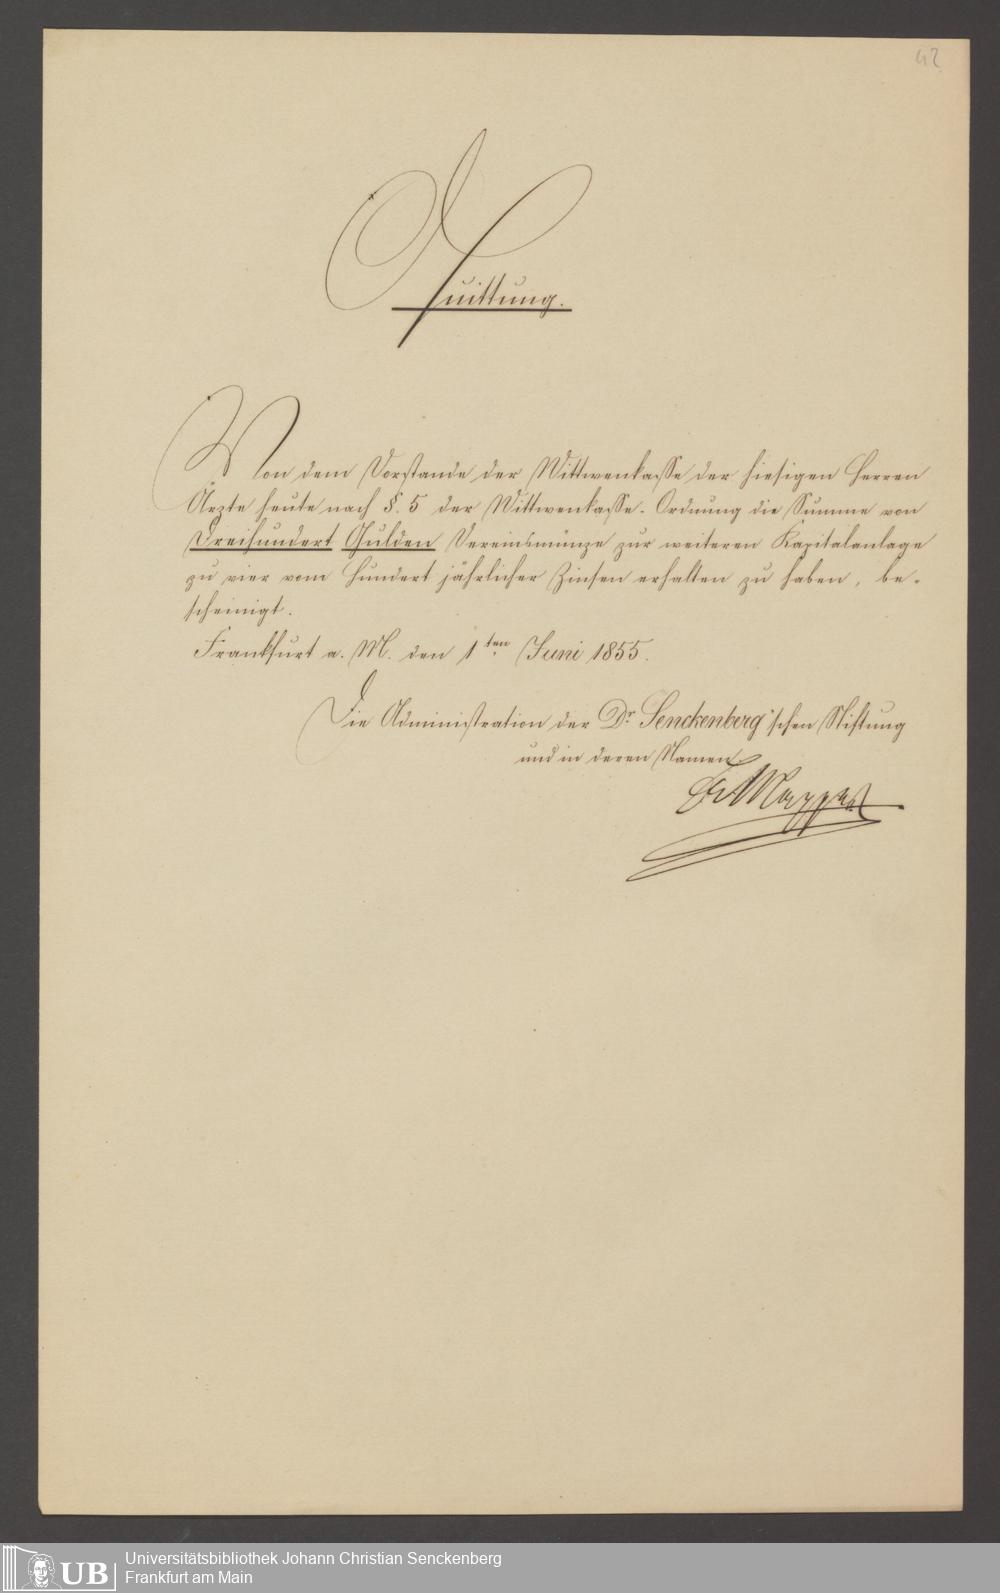 42
Quittung.
Von dem Vorstande der Wittwenkasse der hiesigen Herren
Ärzte heute nach §. 5 der Wittwenkasse-Ordnung die Summe von
Dreihundert Gulden Vereinsmünze zur weiteren Kapitalanlage
zu vier vom Hundert jährlicher Zinsen erhalten zu haben, be-
scheinigt.
Frankfurt a. M. den 1ten Juni 1855.
Die Administration der Dr. Senckenberg'schen Stiftung
und in deren Namen.
UB
Universitätsbibliothek Johann Christian Senckenberg
Frankfurt am Main